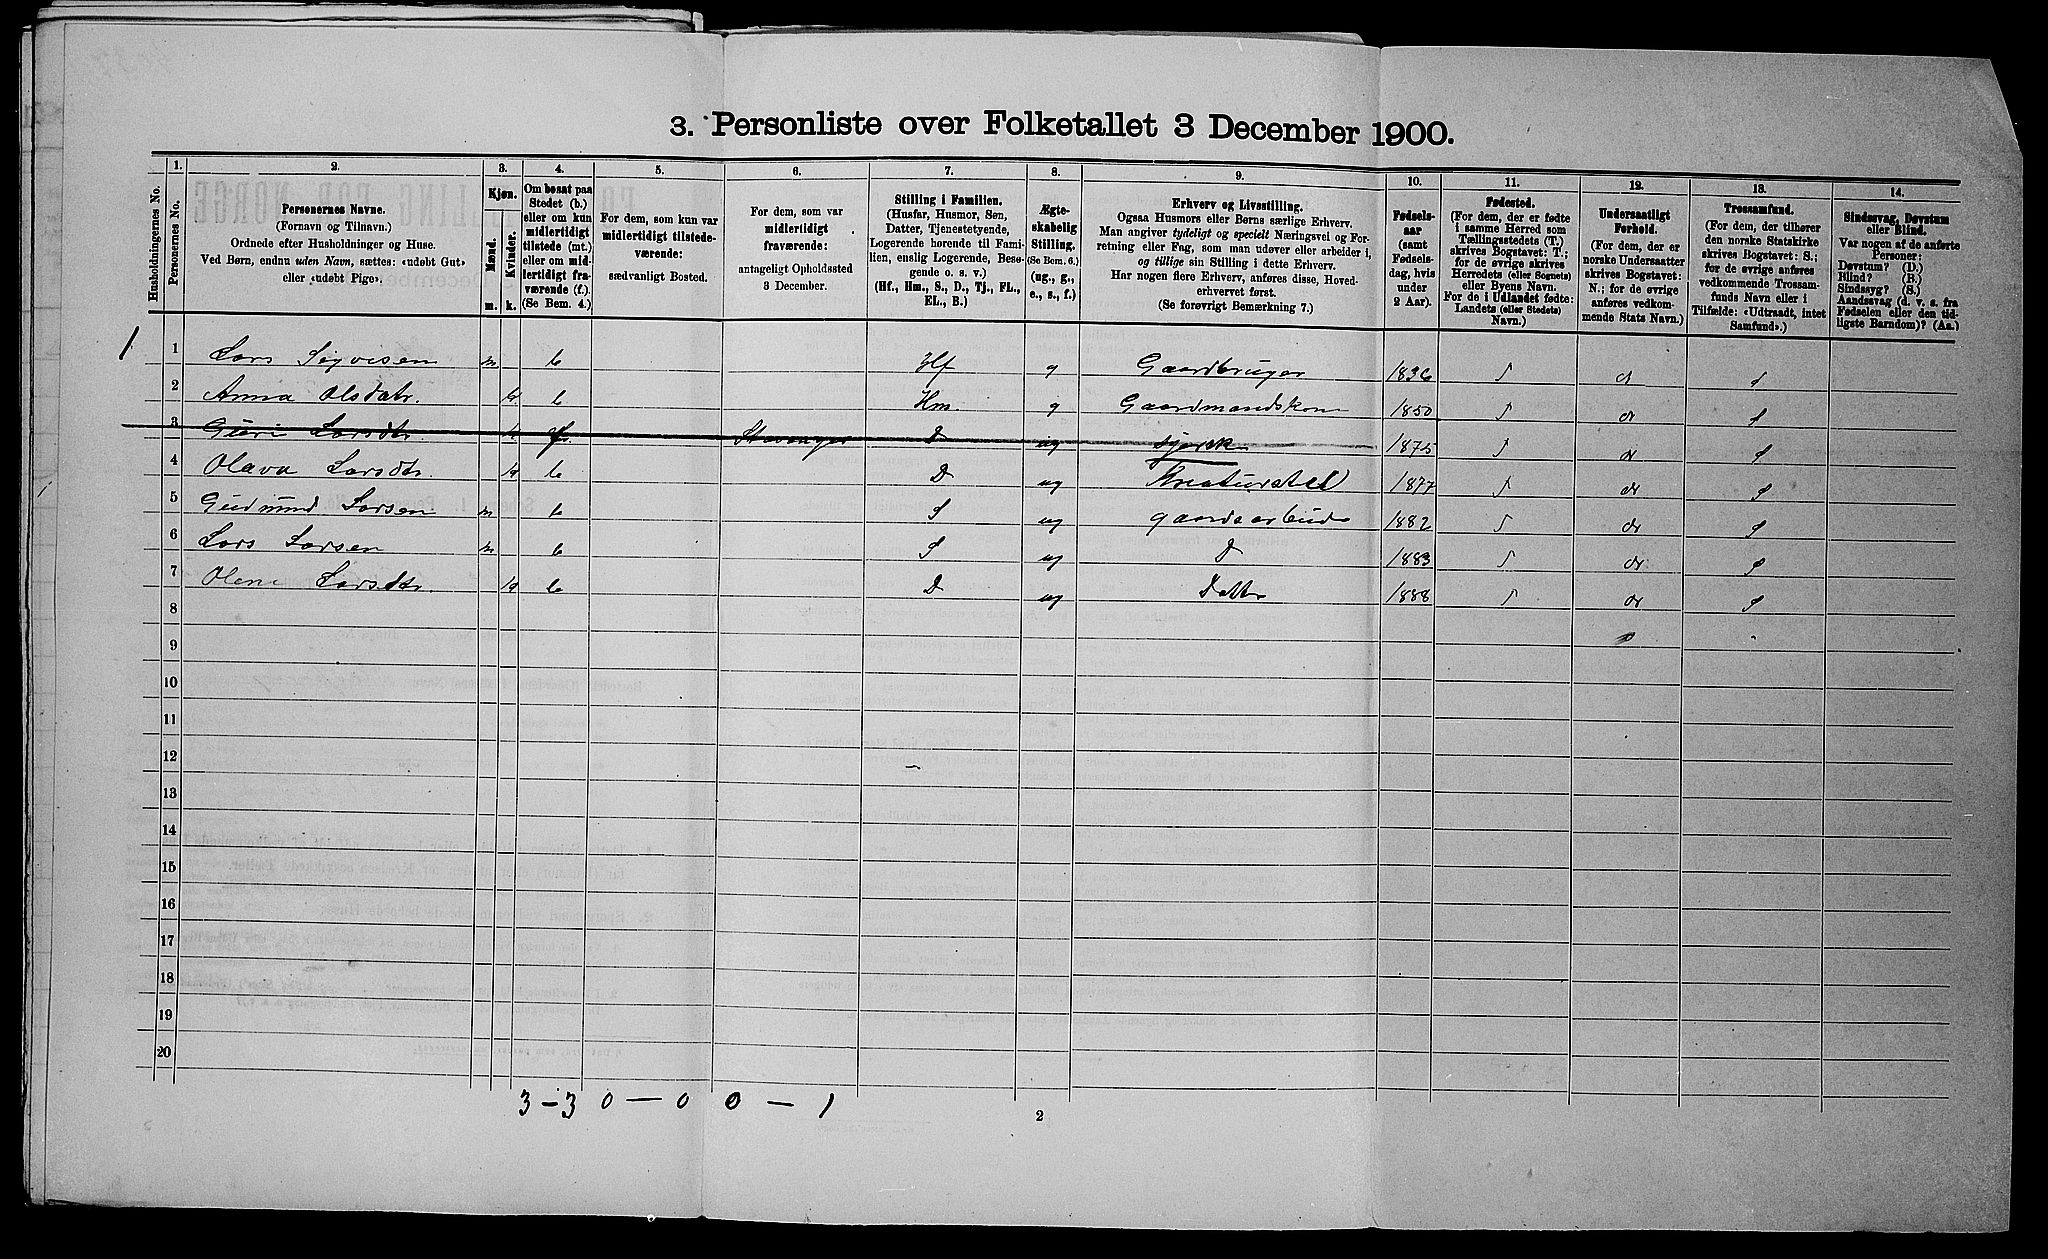 3. Personliste over Folketallet 3 December 1900.
1. 2. 3. 4. 5. 6. 7. 8. 9. 10. 11. 12. 13. 14.
Husholdningernes No.
Personernes No.
Personernes Navne.
(Fornavn og Tilnavn.)
Ordnede efter Husholdninger og Huse.
Ved Børn, endnu uden Navn, sættes: «udøbt Gut»
eller «udøbt Pige».
Kjøn.
Mænd. Kvinder.
m. k.
Om bosat paa
Stedet (b.)
eller om kun
midlertidigt
tilstede (mt.)
eller om mid-
lertidigt fra-
værende (f.)
(Se Bem. 4.)
For dem, som kun var
midlertidigt tilstede-
værende:
sædvanligt Bosted.
For dem, som var
midlertidigt
fraværende:
antageligt Opholdssted
3 December.
Stilling i Familien.
(Husfar, Husmor, Søn,
Datter, Tjenestetyende,
Logerende hørende til Fami-
lien, enslig Logerende, Besø-
gende o. s. v.)
(Hf., Hm., S., D., Tj., FL.,
EL., B.)
Ægte-
skabelig
Stilling.
(Se Bem. 6.)
(ug., g.,
e., s., f.)
Erhverv og Livsstilling.
Ogsaa Husmors eller Børns særlige Erhverv.
Man angiver tydeligt og specielt Næringsvei og For-
retning eller Fag, som man udøver eller arbeider i,
og tillige sin Stilling i dette Erhverv.
Har nogen flere Erhverv, anføres disse, Hoved-
erhvervet først.
(Se forøvrigt Bemærkning 7.)
Fødsels-
aar
(samt
Fødsels-
dag, hvis
under
2 Aar).
Fødested.
(For dem, der er fødte
i samme Herred som
Tællingsstedets (T.)
skrives Bogstavet: T.;
for de øvrige skrives
Herredets (eller Sognets)
eller Byens Navn.
For de i Udlandet fødte:
Landets (eller Stedets)
Navn.)
Undersaatligt
Forhold.
(For dem, der er
norske Undersaatter
skrives Bogstavet:
N.; for de øvrige
anføres vedkom-
mende Stats Navn.)
Trossamfund.
(For dem, der tilhører
den norske Statskirke
skrives Bogstavet: S.;
for de øvrige anføres
vedkommende Trossam-
funds Navn eller i
Tilfælde: «Udtraadt, intet
Samfund».)
Sindssvag, Døvstum
eller Blind.
Var nogen af de anførte
Personer:
Døvstum? (D.)
Blind? (B.)
Sindssyg? (S.)
Aandssvag (d. v. s. fra
Fødselen eller den tid-
ligste Barndom)? (Aa.)
1 1 Lars Sigvesen m b Hf g Gaardbruger 1836 T n S
2 Anna Olsdatr. k b Hm. g Gaardmandskone 1850 T n S
3 Guri Larsdtr. k f. Stavanger D ug syersk 1875 T n S
4 Olava Larsdtr. k b D ug Kreaturstel 1877 T n S
5 Gudmund Larsen m b S ug gaardsarbeide 1882 T n S
6 Lars Larsen m b S ug D 1883 T n S
7 Larsdtr. k b D ug Datter 1888 T n S
8
9
10
11
12
13
14
15
16
17
18
19
20
3 – 3 0 – 0 0 – 1
2